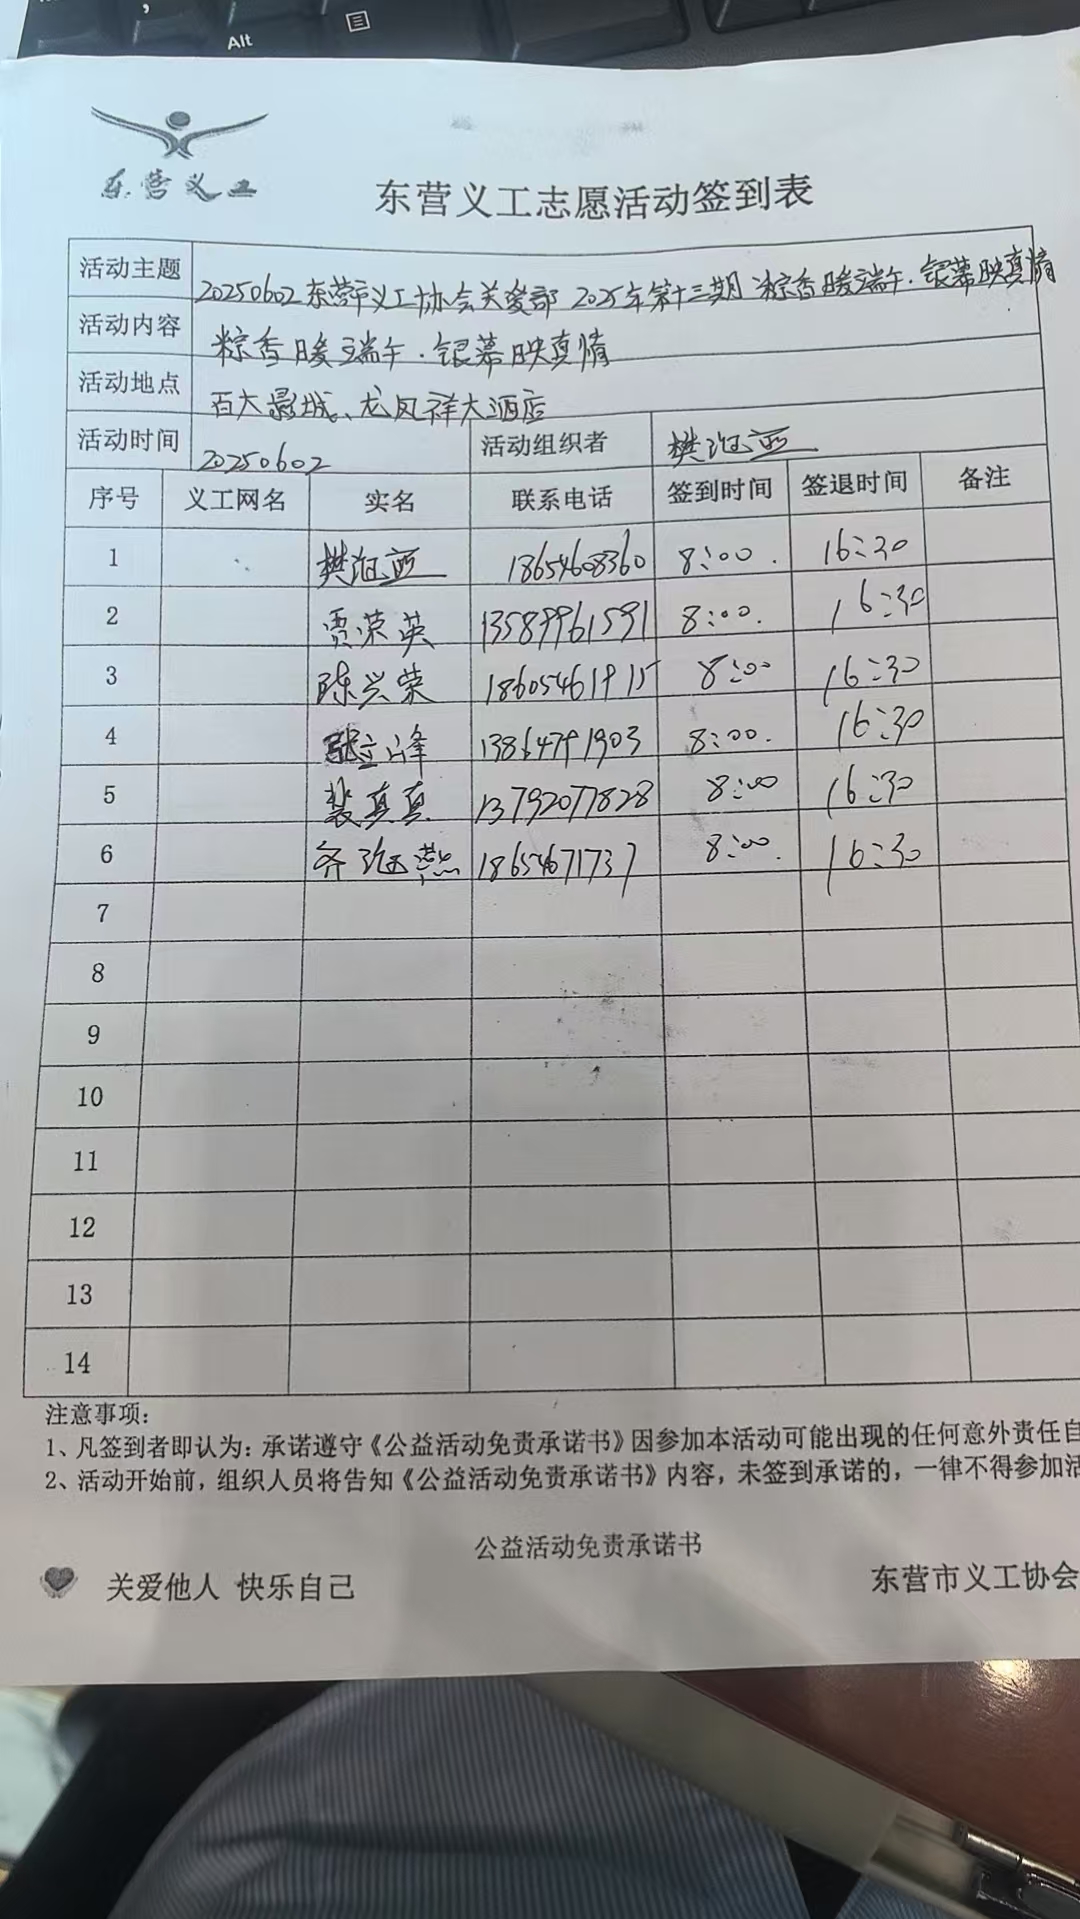 Alt
东营义工
东营义工志愿活动签到表
活动主题 20250602东营市义工协会关爱部 2025年第十三期"粽香暖端午·银幕映真情
活动内容 粽香暖端午·银幕映真情
活动地点 百大影城、龙凤祥大酒店
活动时间 20250602 活动组织者 樊
序号 义工网名 实名 联系电话 签到时间 签退时间 备注
1 樊 18654608360 8:00. 16:30
2 贾荣英 13589961591 8:00. 16:30
3 陈兴荣 18605461915 8:00 16:30
4 张立峰 13864791903 8:00. 16:30
5 裴真真 13792077828 8:00 16:30
6 齐 燕 18654671737 8:00. 16:30
7
8
9
10
11
12
13
14
注意事项:
1、凡签到者即认为: 承诺遵守《公益活动免责承诺书》因参加本活动可能出现的任何意外责任自
2、活动开始前, 组织人员将告知《公益活动免责承诺书》内容, 未签到承诺的, 一律不得参加活
公益活动免责承诺书
关爱他人 快乐自己 东营市义工协会